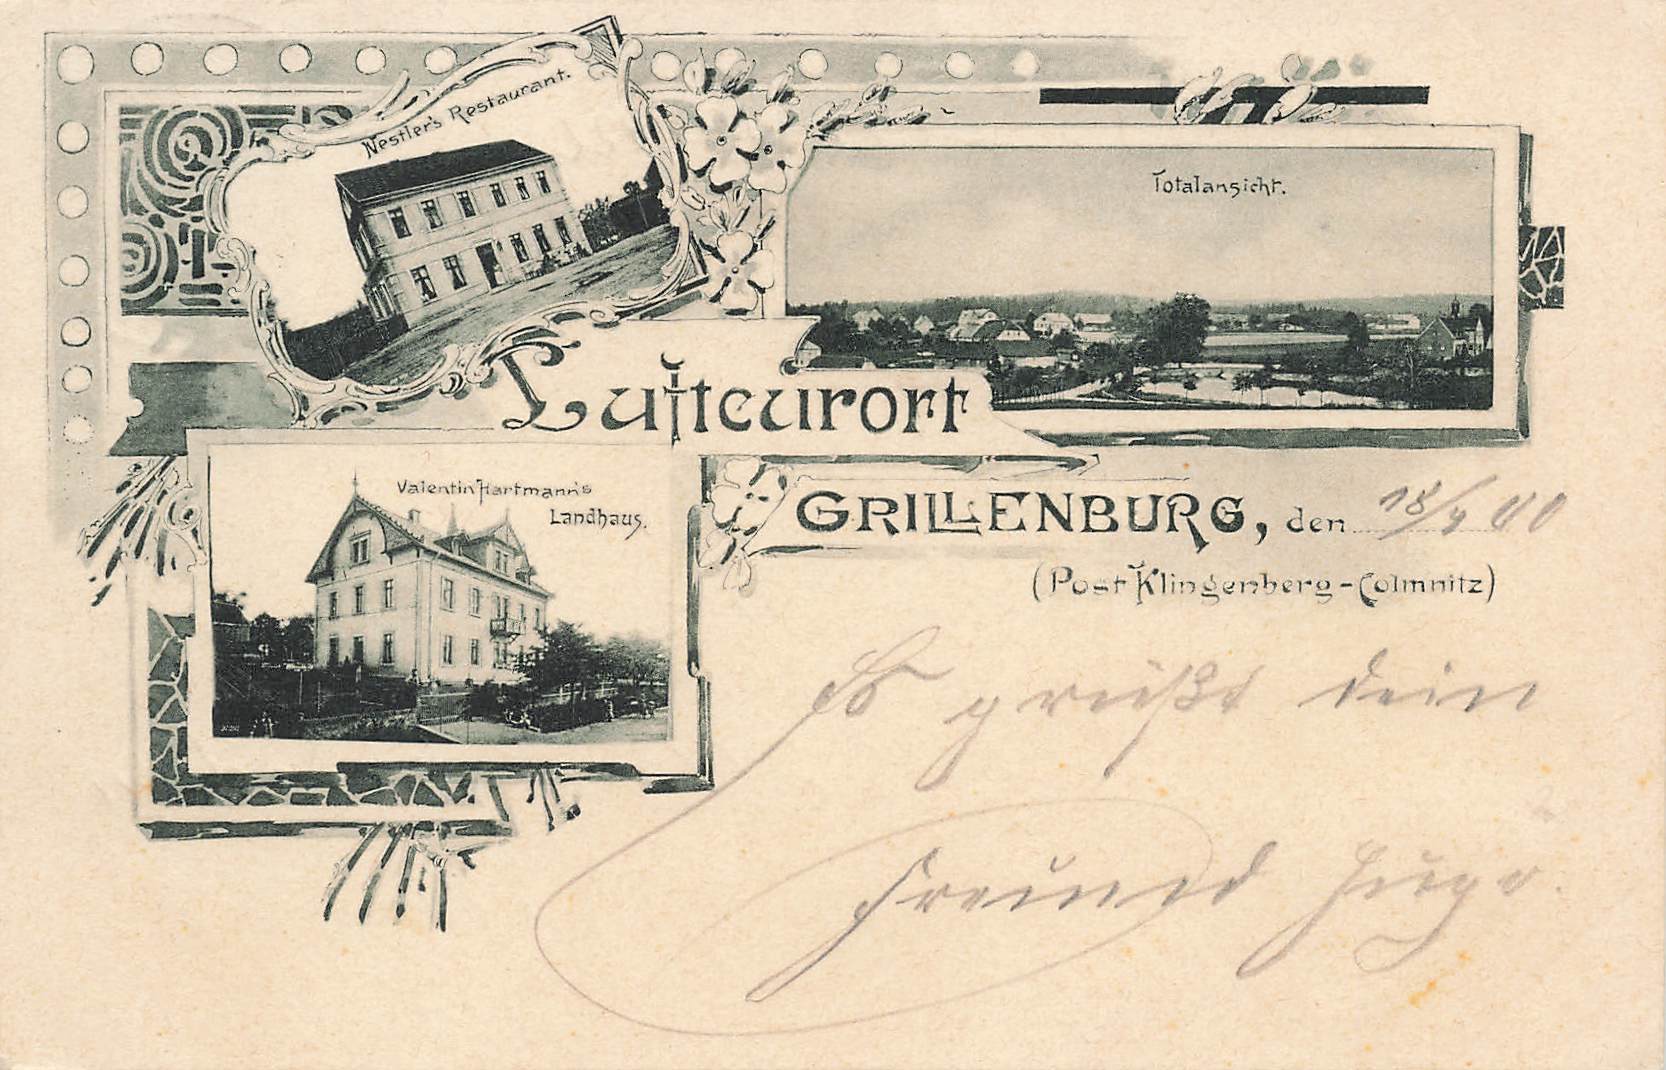 Nestler's Restaurant.
Totalansicht.
Luftcurort
Valentin Hartmann's
Landhaus.
GRILLENBURG, den 18/4 00
(Post Klingenberg-Colmnitz)
Es grüßt dein
Freund Hugo.